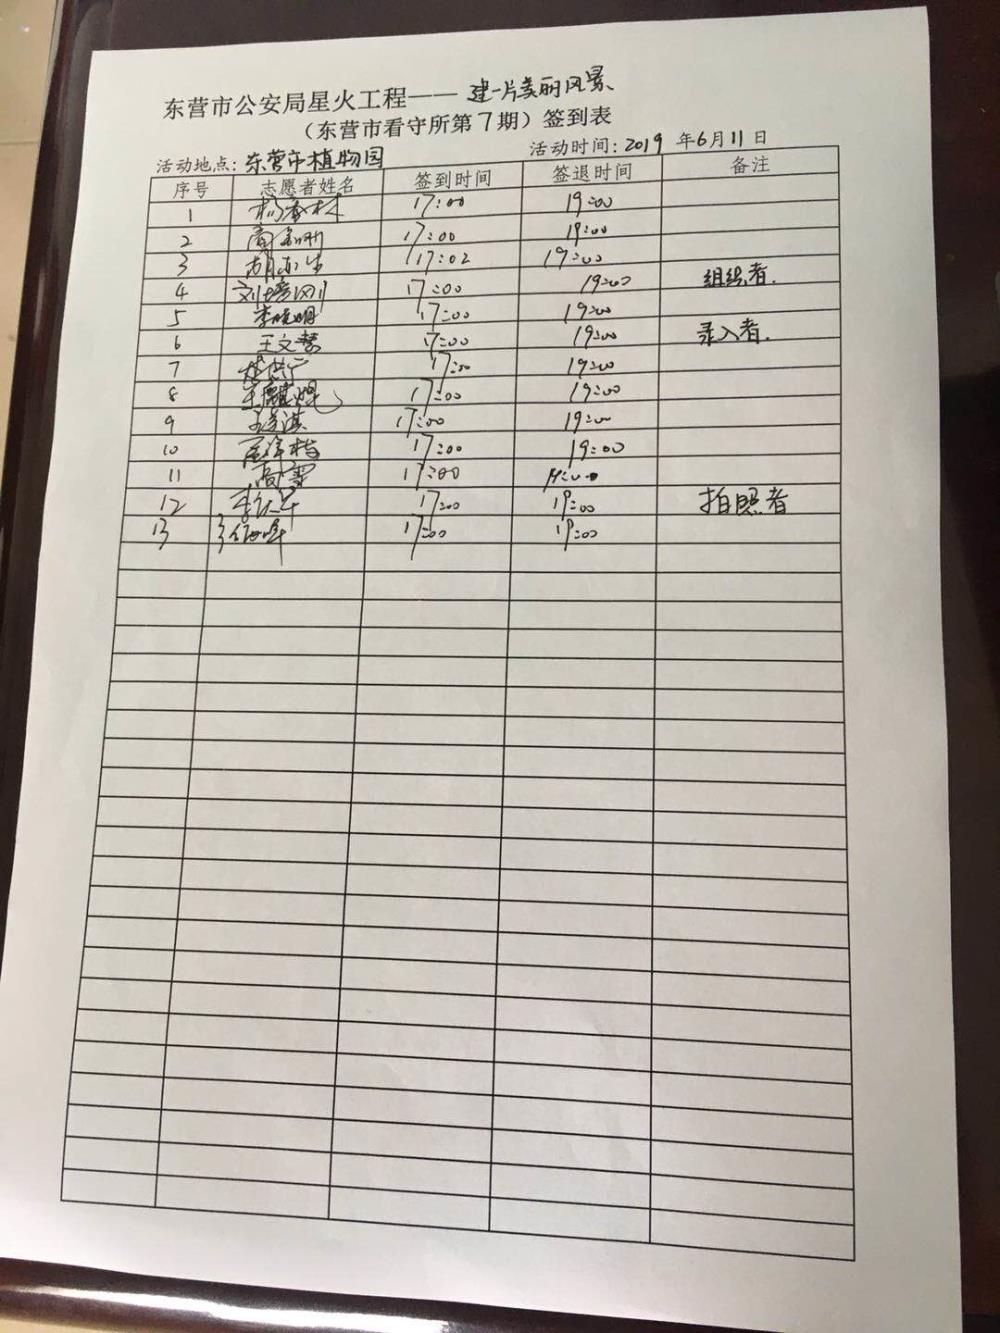 东营市公安局星火工程——建一片美丽风景
（东营市看守所第7期）签到表
活动地点：东营市植物园 活动时间：2019年6月11日
序号 志愿者姓名 签到时间 签退时间 备注
1 17:00 19:00
2 17:00 19:00
3 17:02 19:00
4 刘培刚 17:00 19:00 组织者.
5 李晓明 17:00 19:00
6 王文慧 17:00 19:00 录入者.
7 17:00 19:00
8 17:00 19:00
9 17:00 19:00
10 17:00 19:00
11 高雪 17:00
12 17:00 19:00 拍照者
13 17:00 19:00